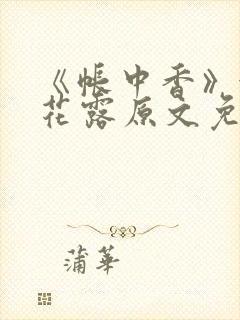 《帐中香》
花露原文免
蒲华